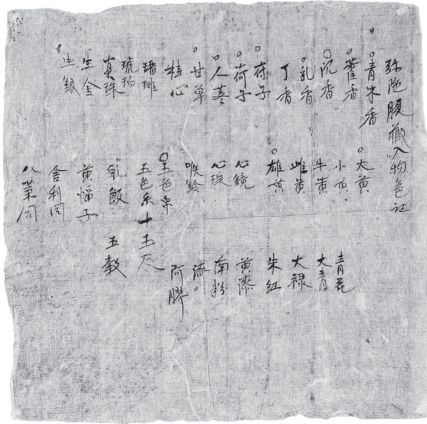 弥陁腹藏入物色記
青木香
藿香
沉香
乳香
丁香
苻子
荷子
人蔘
甘草
桂心
瑠璃
琥珀
真珠
生金
生銀
大黄
小黄
牛黄
雌黄
雄黄
心鏡
心珠
喉鈴
五色帛
五色糸十五尺
乾飯 五穀
黄幅子
舎利同
八葉同
青花
大青
大禄
朱紅
黄漆
南粉
漆
阿膠